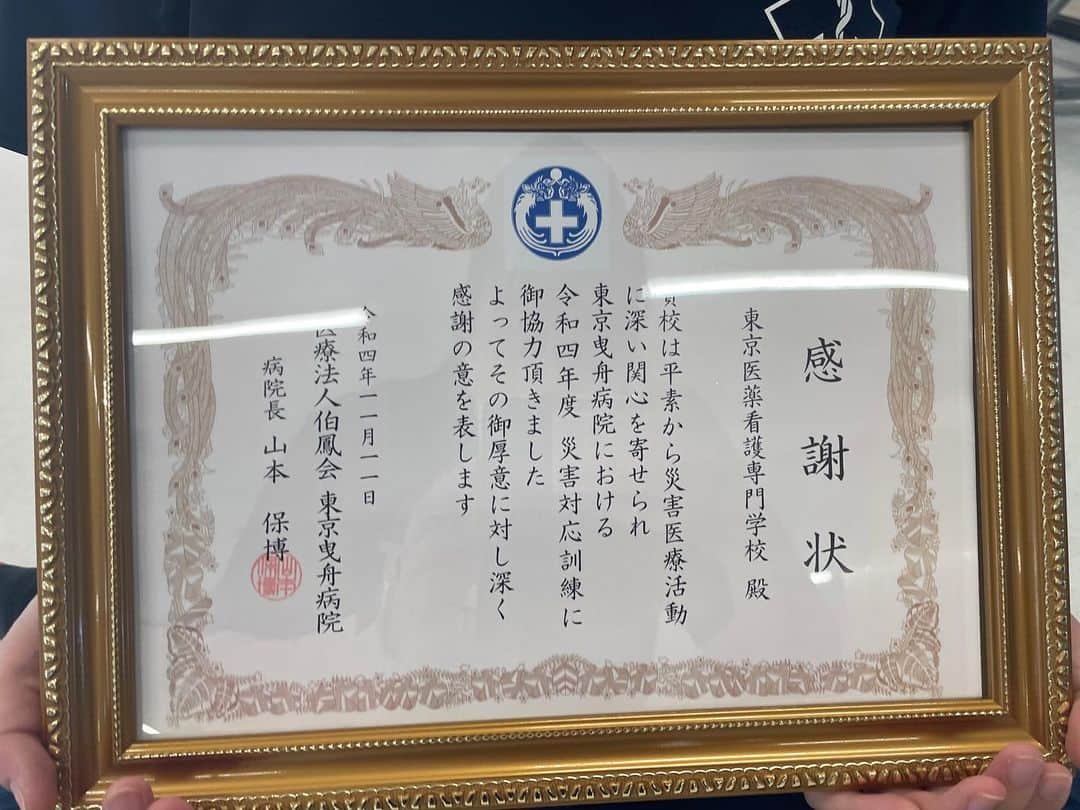 感謝状
東京医薬看護専門学校 殿
貴校は平素から災害医療活動
に深い関心を寄せられ
東京曳舟病院における
令和四年度 災害対応訓練に
御協力頂きました
よってその御厚意に対し深く
感謝の意を表します
令和四年一一月一一日
医療法人伯鳳会 東京曳舟病院
病院長 山本 保博